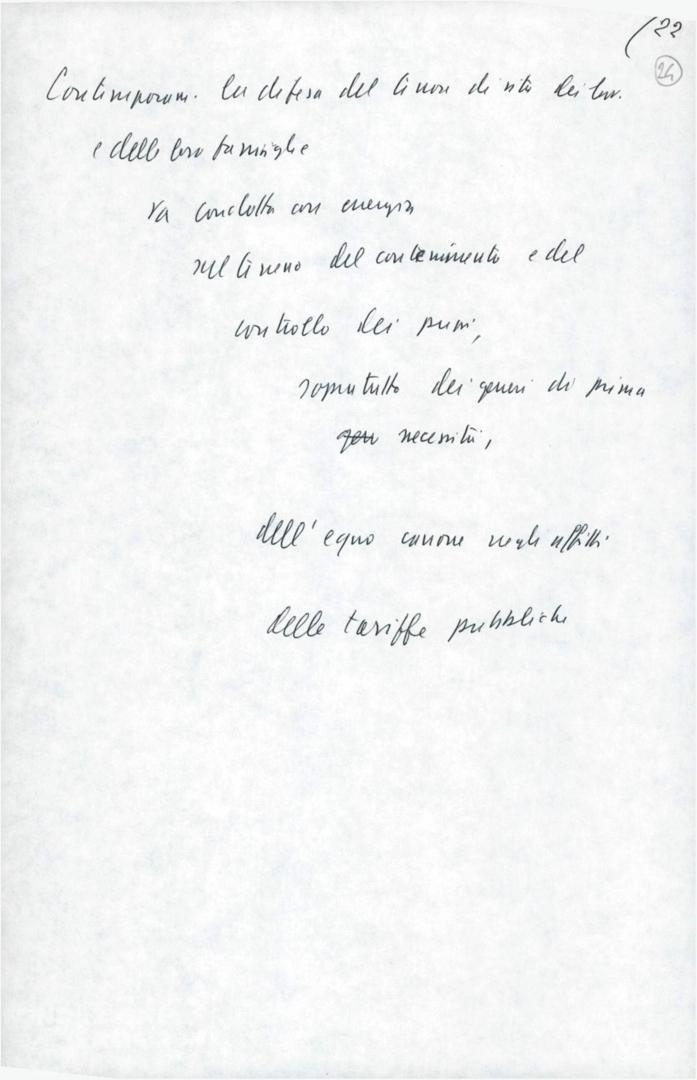 (22
24
Contemporam. la difesa del tenore di vita dei lav.
e delle loro famiglie
va condotta con energia
sul terreno del contenimento e del
controllo dei prezzi,
sopratutto dei generi di prima
gen necessità,
dell'equo canone negli affitti
delle tariffe pubbliche